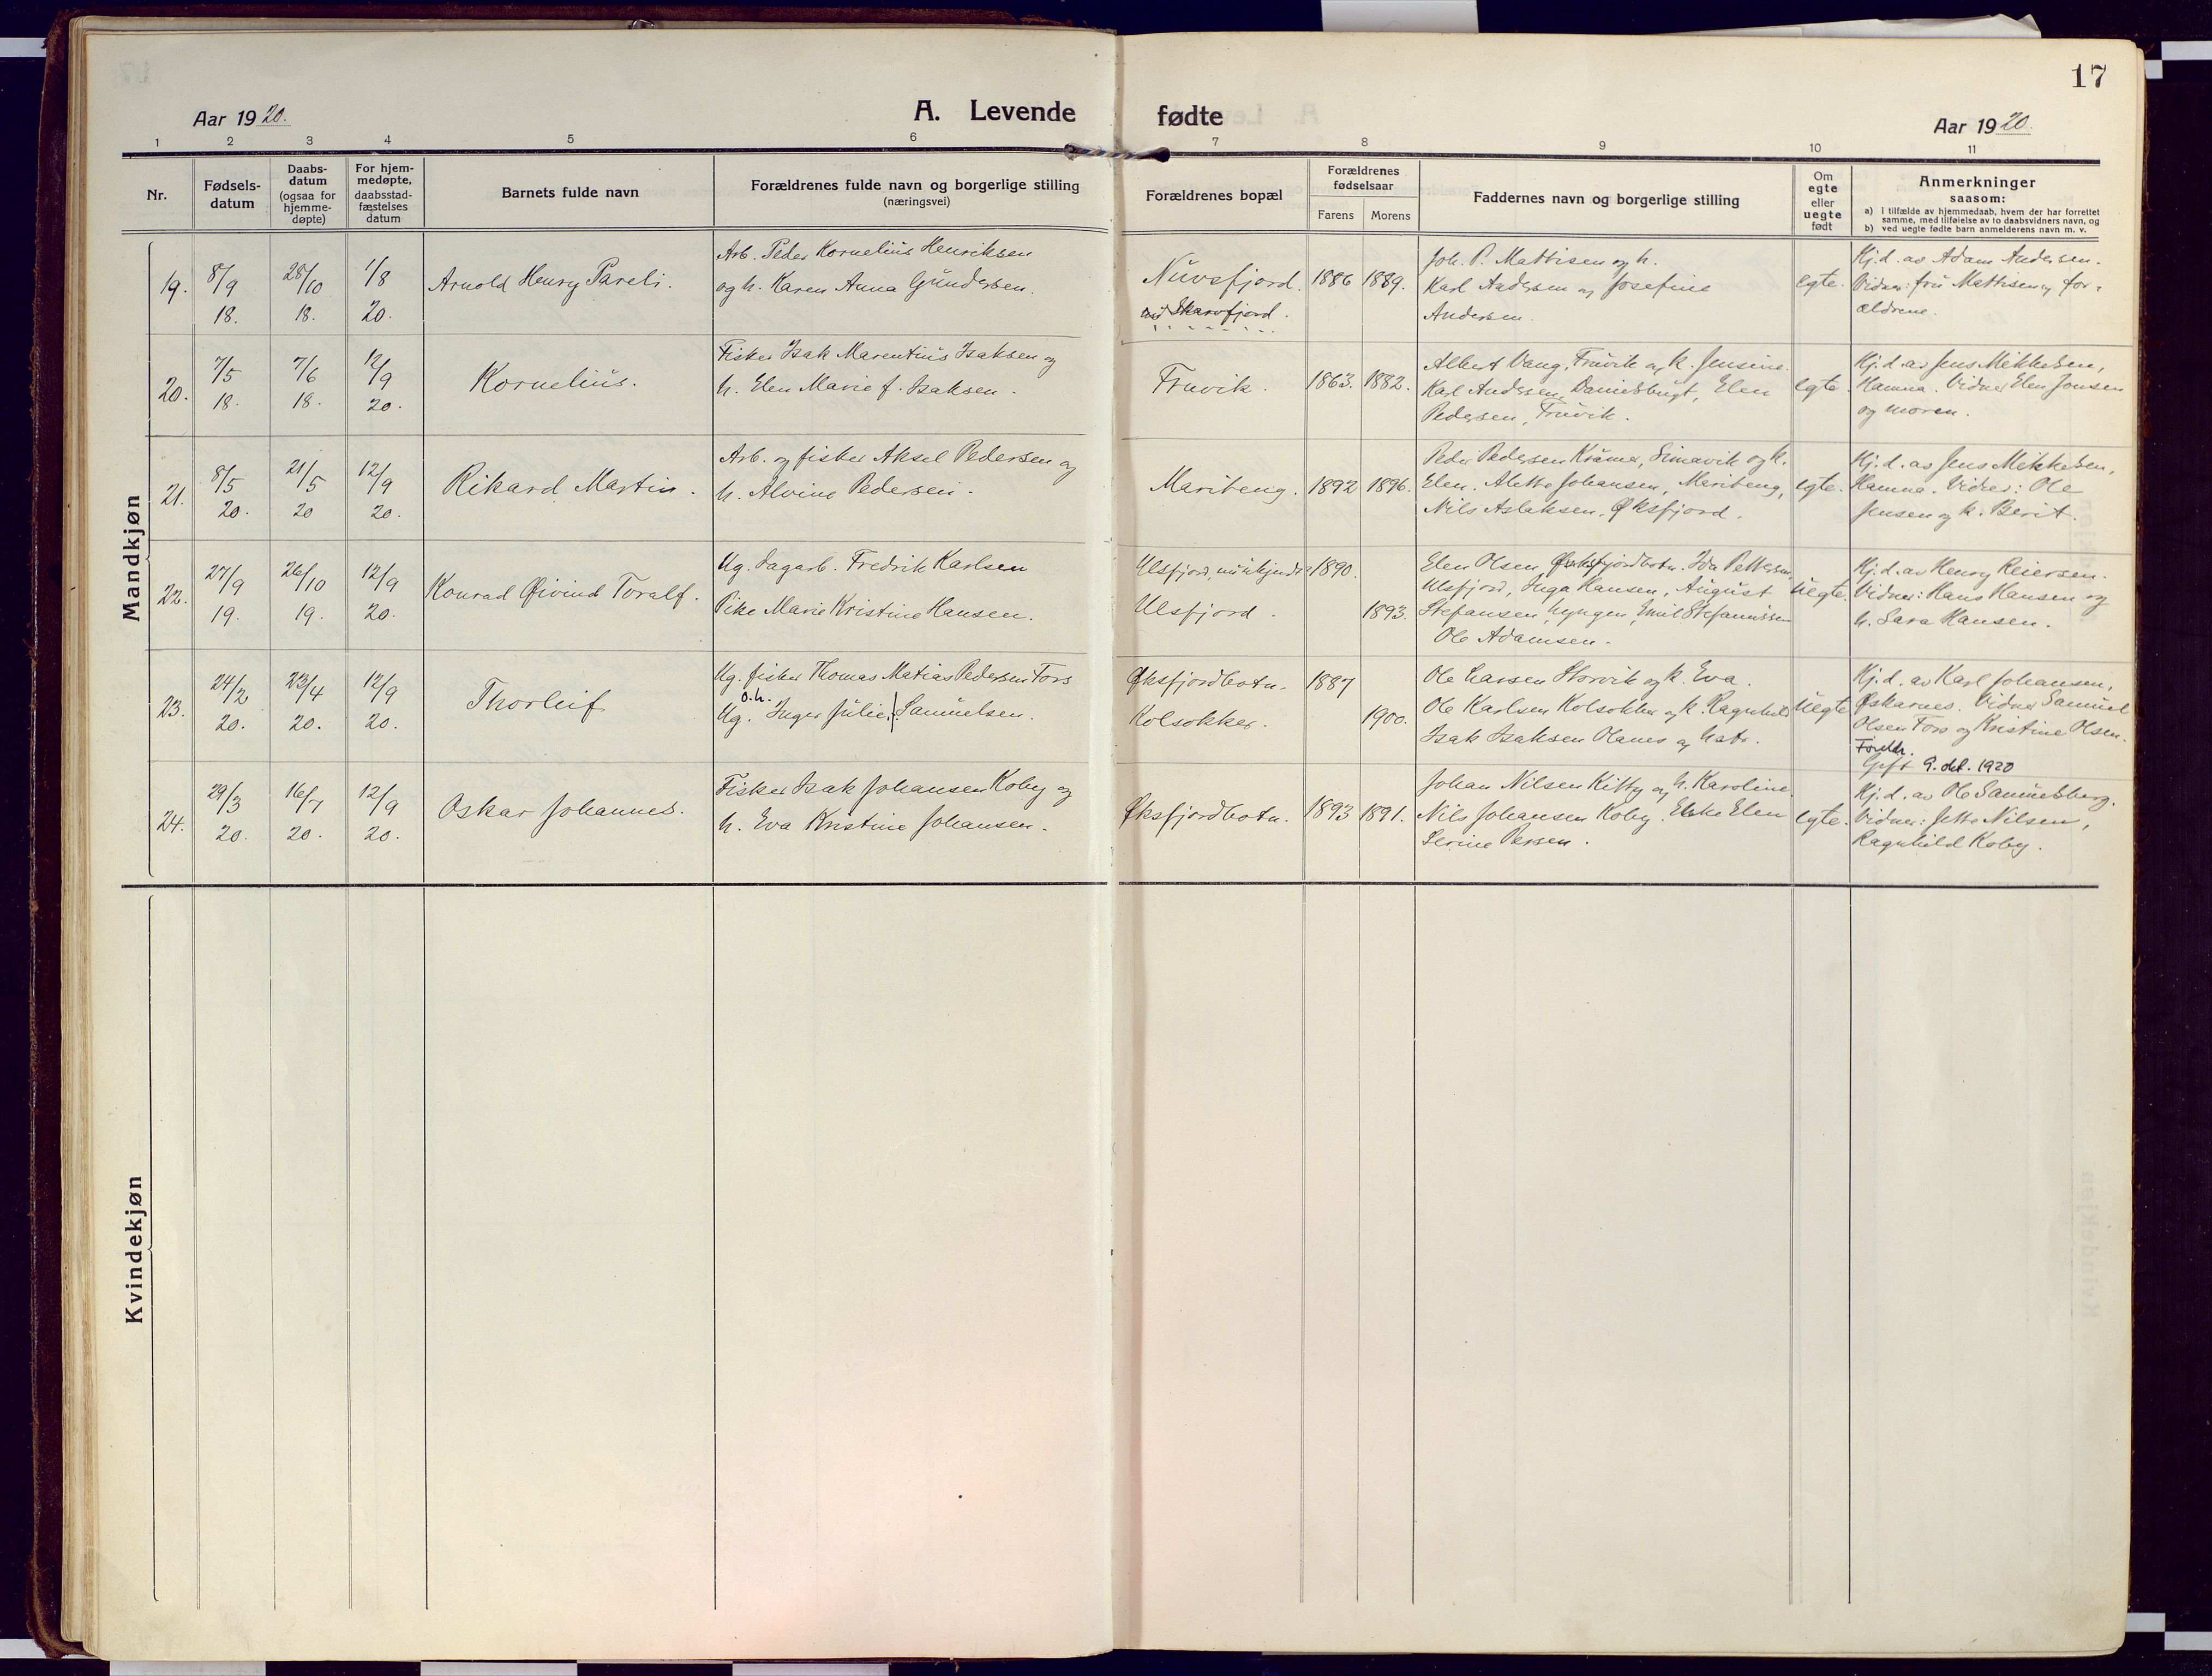 17
Aar 1920.
A. Levende fødte
Aar 1920.
1 2 3 4 5 6 7 8 9 10 11
Nr.
Fødsels-
datum
Daabs-
datum
(ogsaa for
hjemme-
døpte)
For hjem-
medøpte,
daabsstad-
fæstelses
datum
Barnets fulde navn
Forældrenes fulde navn og borgerlige stilling
(næringsvei)
Forældrenes bopæl
Forældrenes
fødselsaar
Farens Morens
Faddernes navn og borgerlige stilling
Om
egte
eller
uegte
født
Anmerkninger
saasom:
a) I tilfælde av hjemmedaab, hvem der har forrettet
samme, med tilføielse av to daabsvidners navn, og
b) ved uegte fødte barn anmelderens navn m. v.
Mandkjøn
19.
8/9
18.
28/10
18.
1/8
20.
Arnold Henry Pareli.
Arb. Peder Kornelius Henriksen
og h. Karen Anna Gundersen.
Nuvsfjord.
Skarvfjord.
1886
1889.
Joh. P. Mathisen og h.
Karl Andersen og Josefine
Andersen.
egte.
Hj.d. av Adam Andersen.
Vidner: fru Mathisen og for-
ældrene.
20.
7/5
18.
7/6
18.
12/9
20.
Kornelius.
Fisker Isak Marentius Isaksen og
h. Elen Marie f. Isaksen.
Fruvik.
1863.
1882.
Albert Vang, Fruvik og h. Jensine.
Karl Andersen, Danielsbugt, Elen
Pedersen, Fruvik.
egte.
Hj.d. av Jens Mikkelsen,
Hamna. Vidner Elen Jonsen
og moren.
21.
8/5
20.
21/5
20
12/9
20.
Rikard Martin.
Arb. og fisker Aksel Pedersen og
h. Alvine Pedersen.
Maribeng.
1892
1896.
Peder Pedersen Kramer, Simavik og h.
Elen. Alette Johansen, Meribeng,
Nils Aslaksen, Øksfjord.
egte.
Hj.d. av Jens Mikkelsen,
Hamna. Vidner: Ole
Jensen og h. Berit.
22.
27/9
19.
26/10
19.
12/9
20.
Konrad Øivind Toralf.
Ug. Sagarb. Fredrik Karlsen
Pike Marie Kristine Hansen.
Ulsfjord, nu ukjendt
Ulsfjord.
1890.
1893.
Elen Olsen Øksfjordbotn. Ida Pettersen,
Ulsfjord, Inga Hansen, August
Stefansen Lyngen, Emil Stefanussen
Ole Adamsen.
Uegte.
Hj.d. av Henry Reiersen.
Vidner: Hans Hansen og
h. Sara Hansen.
23.
24/2
20.
23/4
20.
12/9
20.
Thorleif
Ug. fisker Thomas Matias Pedersen Fors
o.h.
Ug. Inger Julie Samuelsen.
Øksfjordbotn.
Kolsokker.
1887
1900.
Ole Larsen Storvik og h. Eva.
Ole Karlsen Kolsokker og h. Ragnhild
Isak Isaksen Olanes og hstr.
Uegte
Hj.d. av Karl Johansen,
Øskarnes. Vidner Samuel
Olsen Fors og Kristine Olsen.
Foreldr.
Gift 9. okt. 1920
24.
29/3
20.
16/7
20.
12/9
20.
Oskar Johannes.
Fisker Isak Johansen Koby og
h. Eva Kristine Johansen.
Øksfjordbotn.
1893
1891.
Johan Nilsen Kitty og h. Karoline.
Nils Johansen Koby. Enke Elen
Serine Persen.
egte.
Hj.d. av Ole Samuelsberg.
Vidner: Jette Nilsen,
Ragnhild Koby.
Kvindekjøn